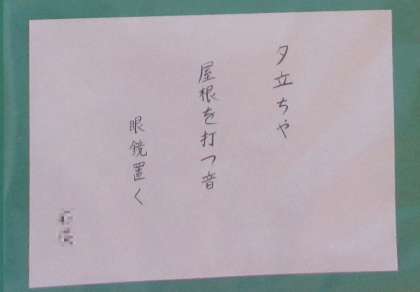 夕立ちや
屋根を打つ音
眼鏡置く